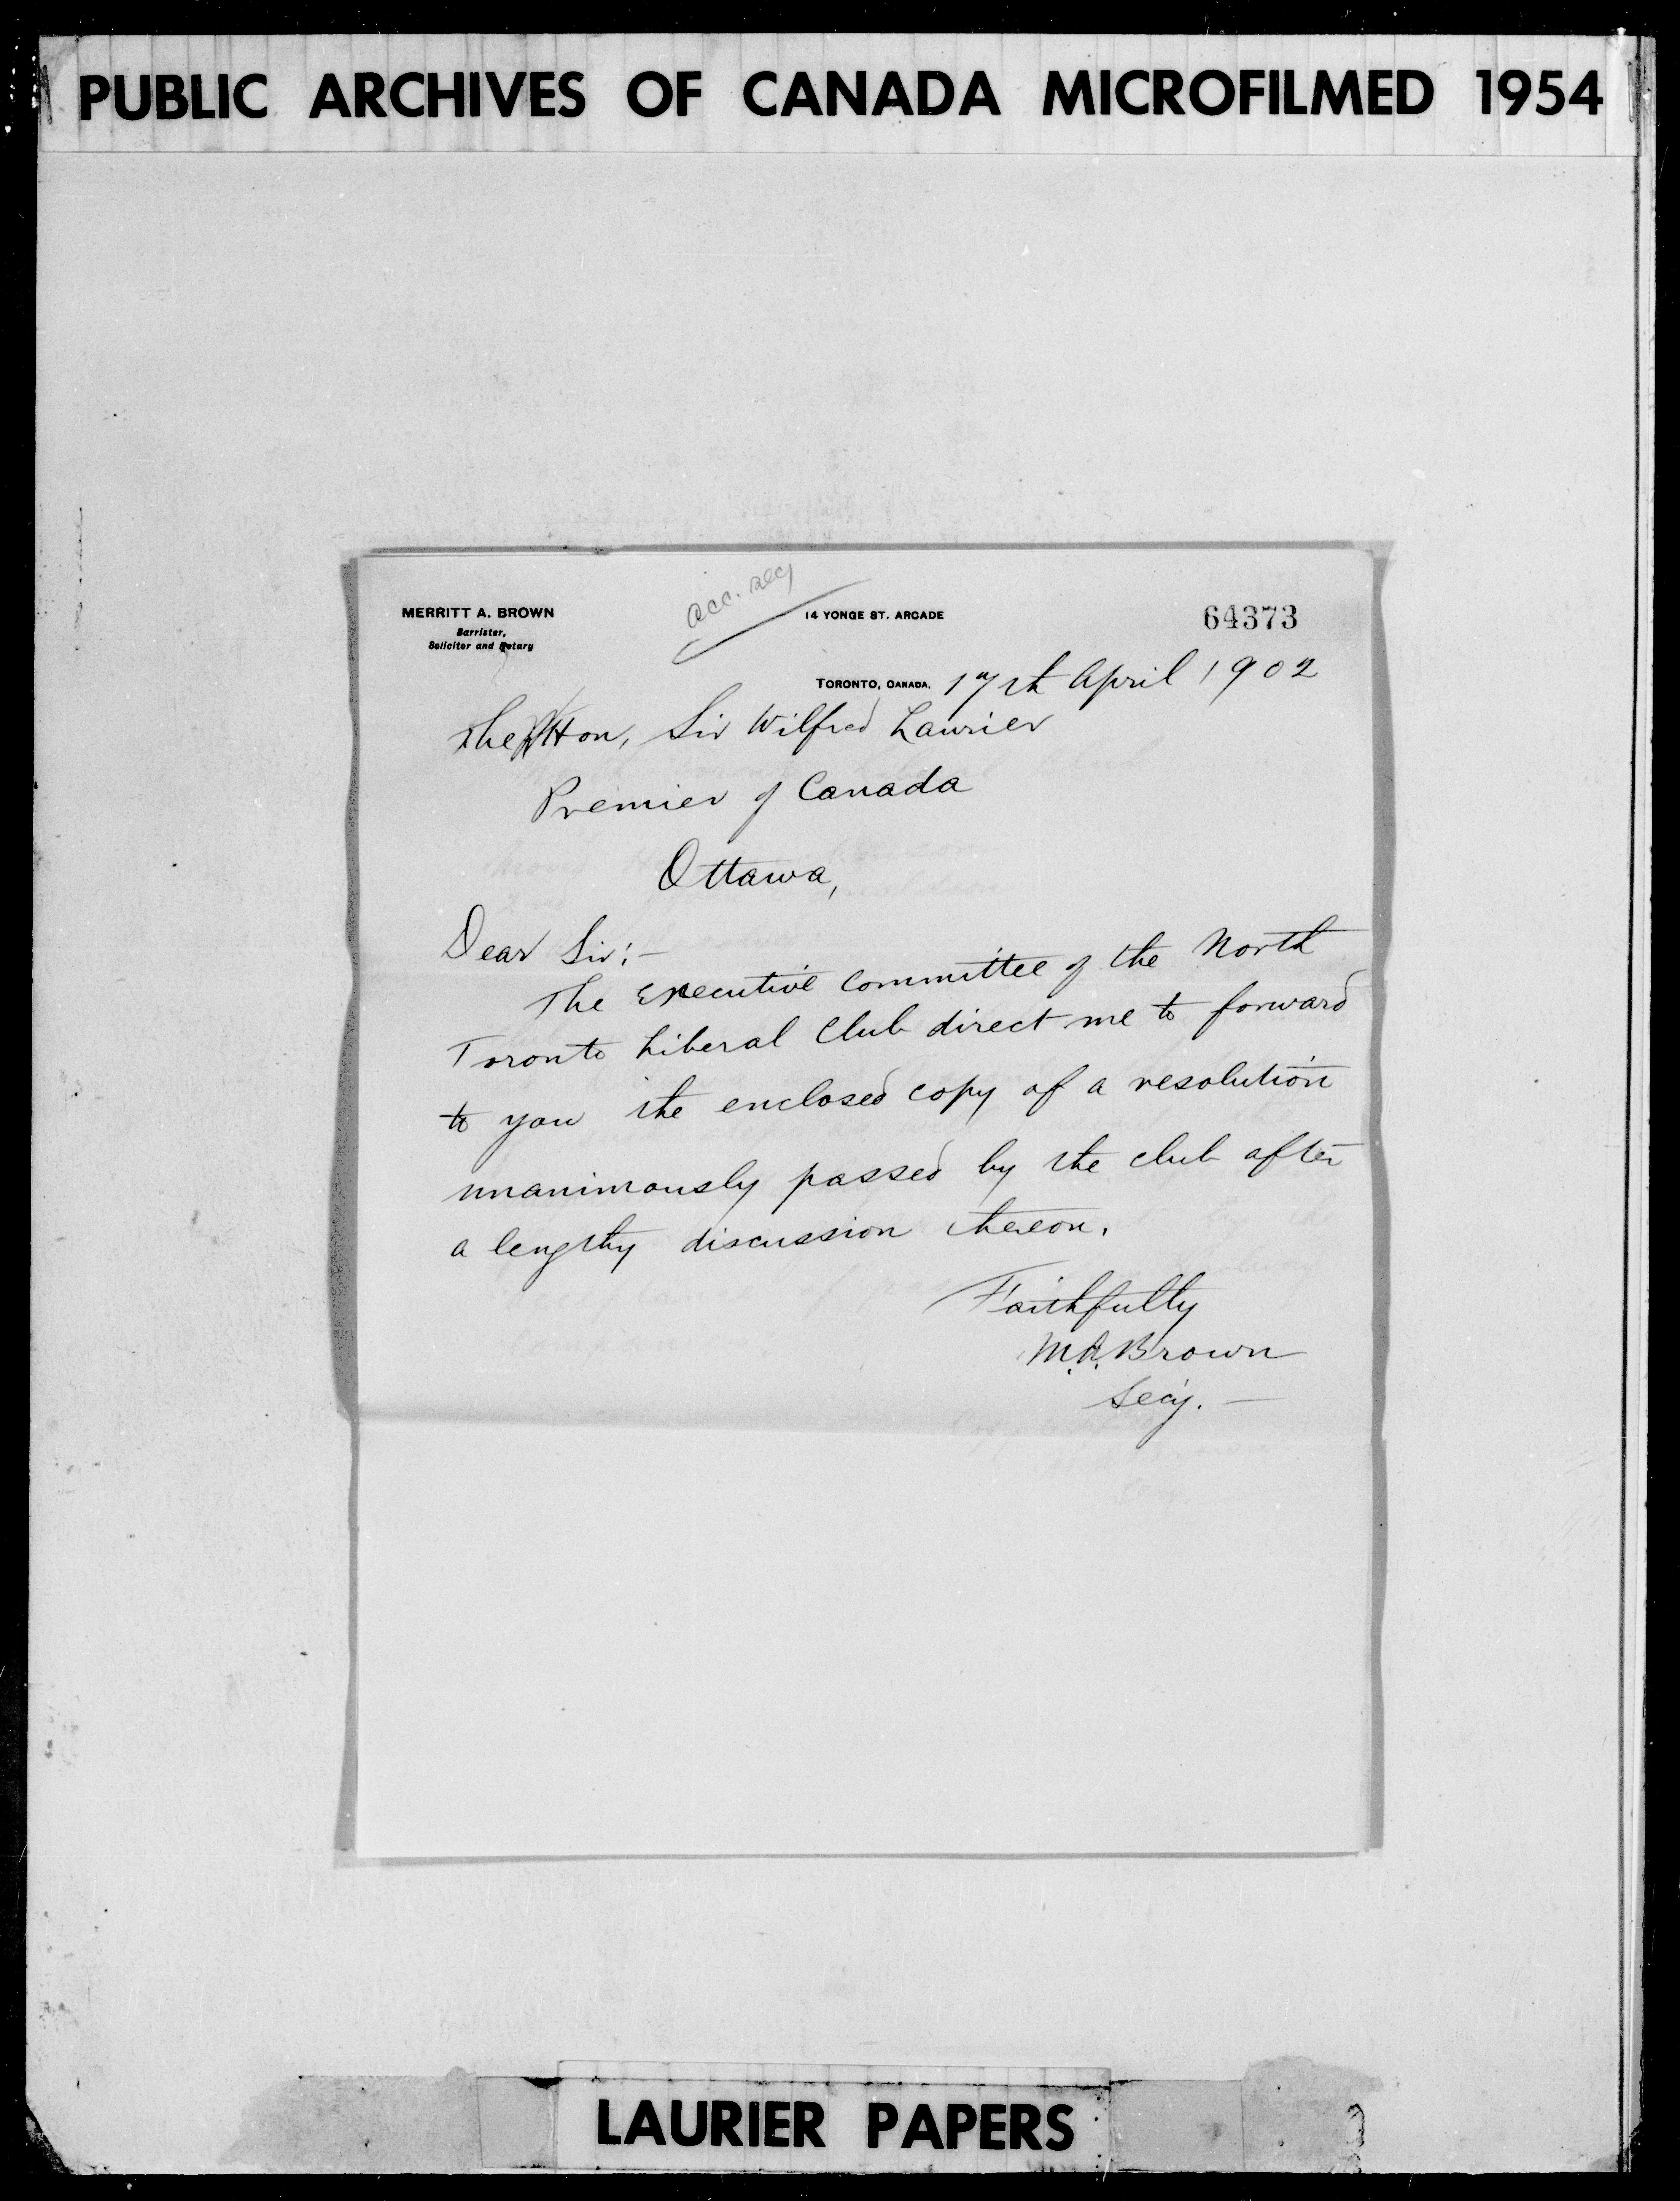 PUBLIC ARCHIVES OF CANADA MICROFILMED 1954
acc. secy
MERRITT A. BROWN
Barrister,
Solicitor and Notary
14 YONGE ST. ARCADE
64373
TORONTO, CANADA, 17th April 1902
The Hon, Sir Wilfred Laurier
Premier of Canada
Ottawa,
Dear Sir:-
The Executive Committee of the North
Toronto Liberal Club direct me to forward
to you the enclosed copy of a resolution
unanimously passed by the club after
a lengthy discussion thereon.
Faithfully
M.A. Brown
Secy. -
LAURIER PAPERS